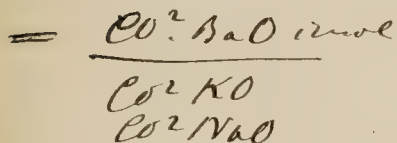 = CO². BaO insol
CO² KO
CO² NaO